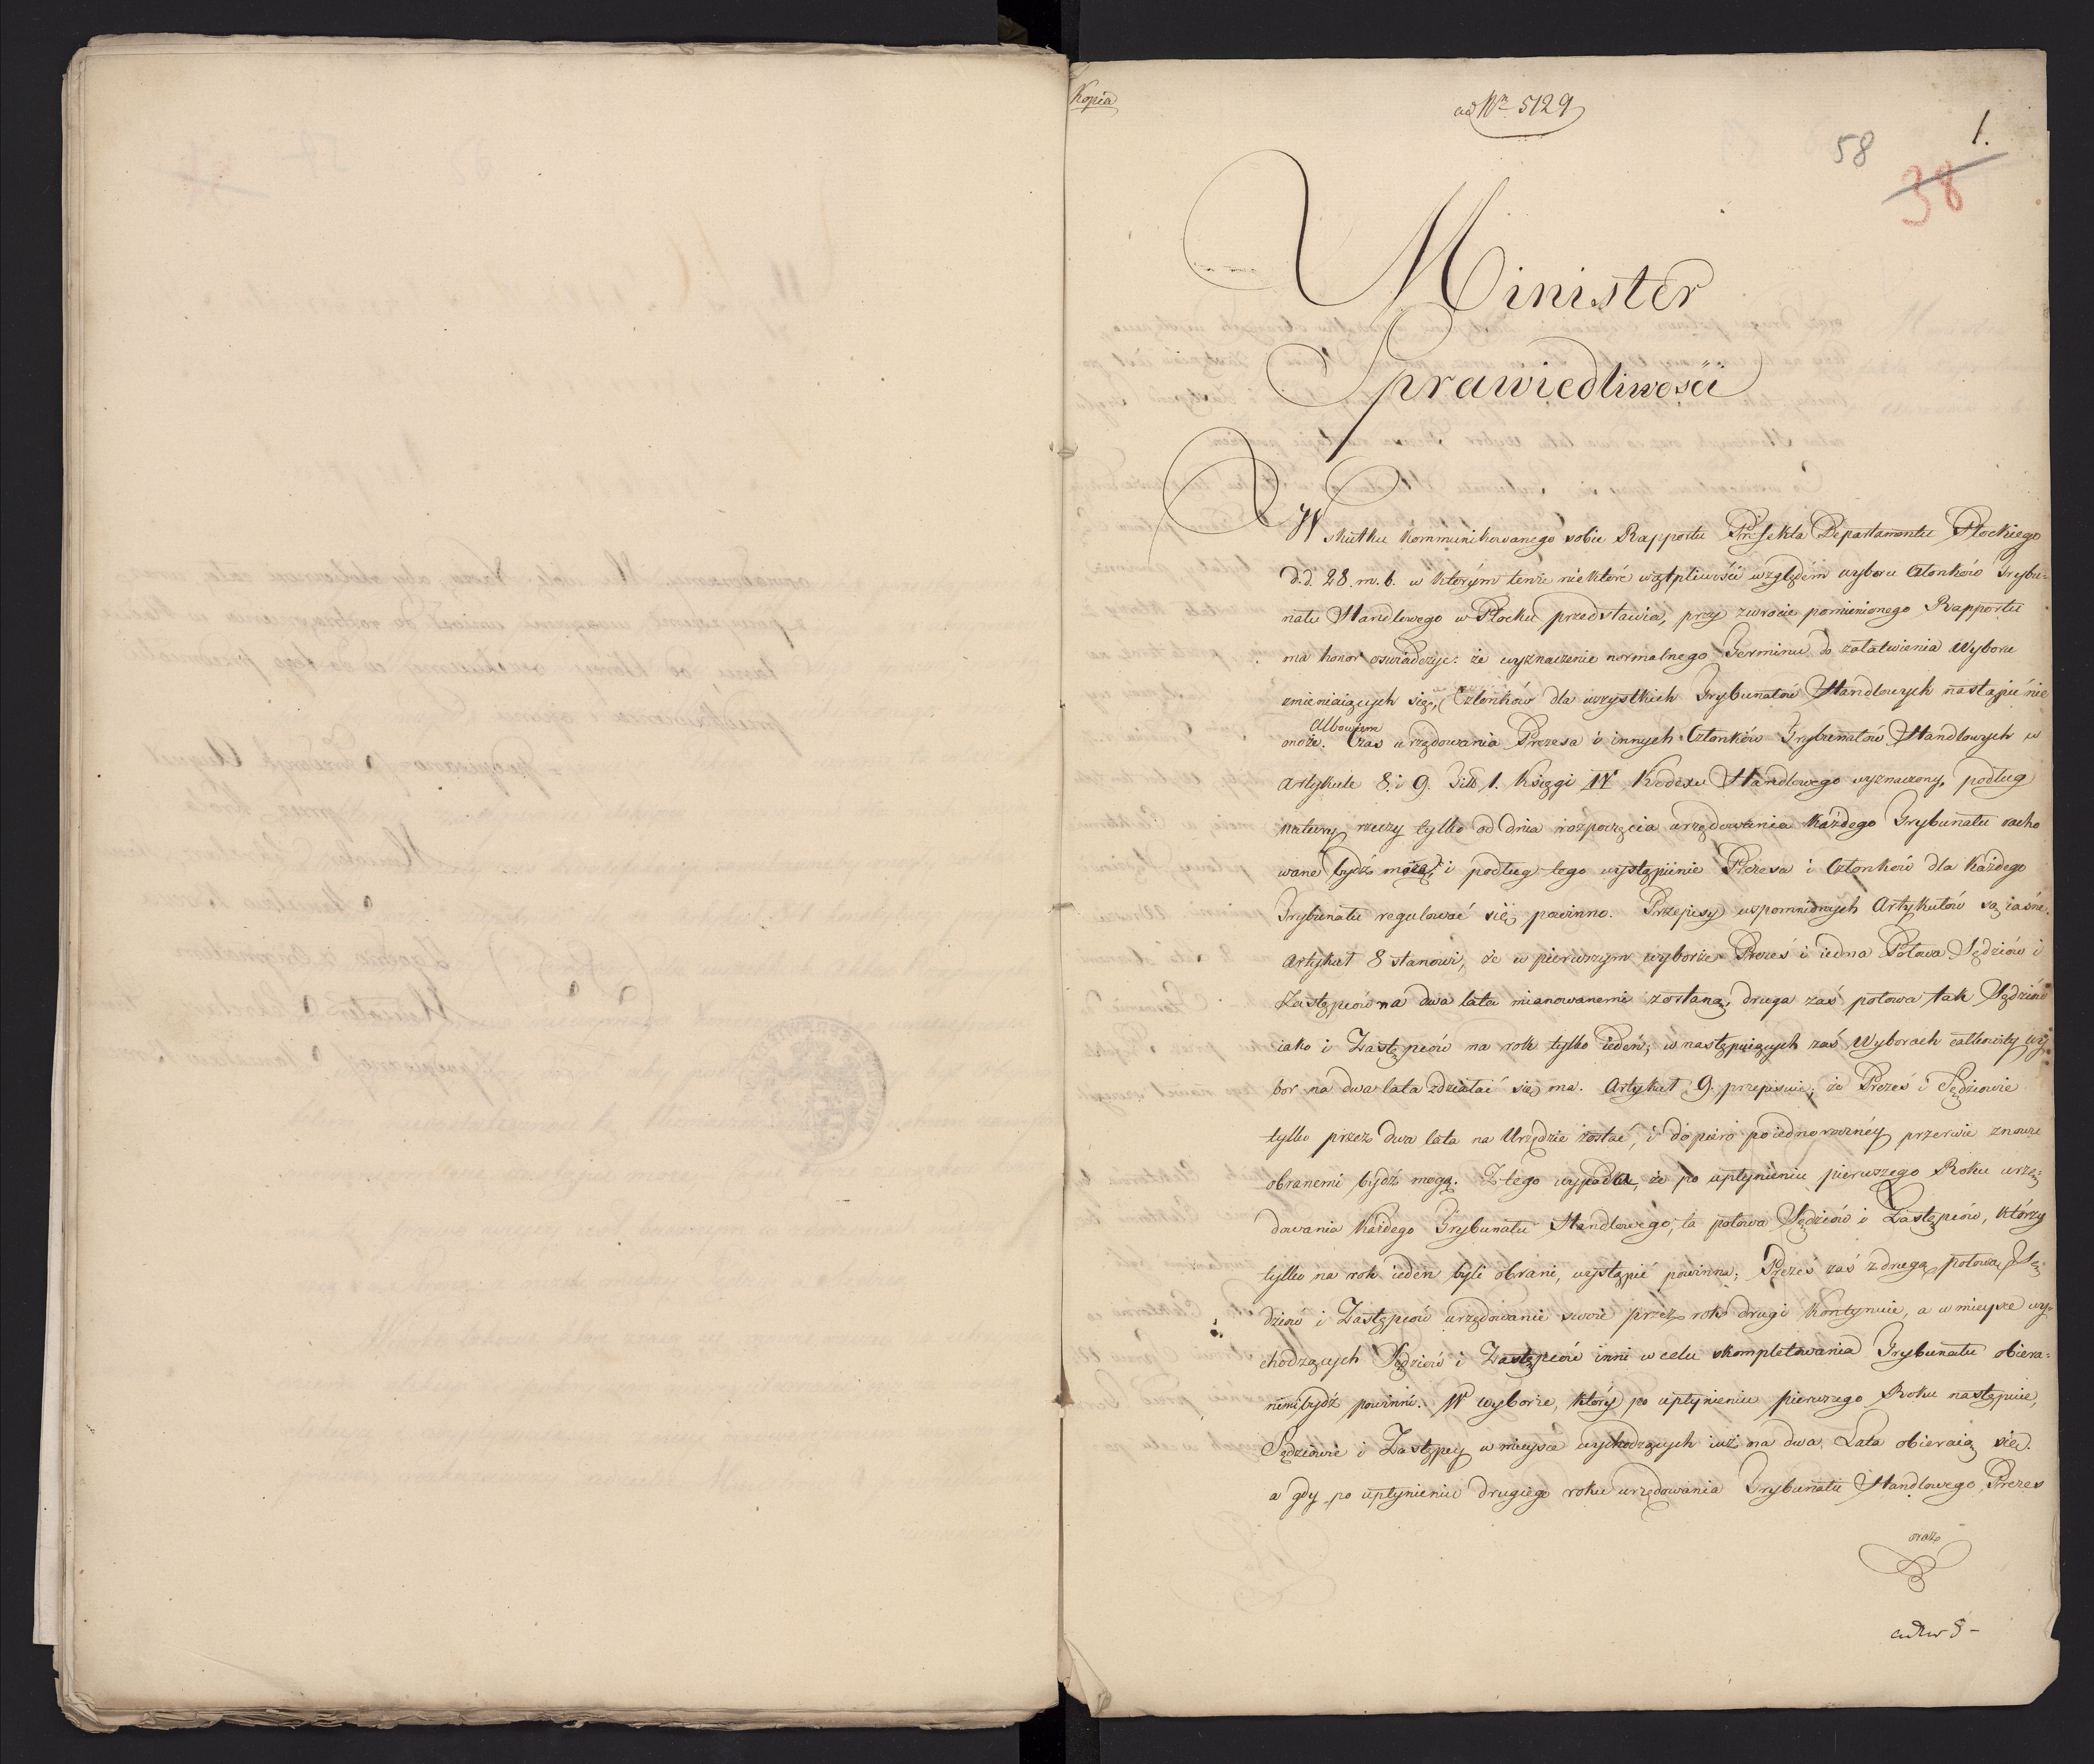 Kopia
ad Nr 5129
58
1.
38
Minister
Sprawiedliwości
W skutku kommunikowanego sobie Rapportu Prefekta Departamentu Płockiego
d.d. 28. m. b. w którym tenże niektóre wątpliwości względem wyboru Członków Trybu-
nału Handlowego w Płocku przedstawia, przy zwrocie pomienionego Rapportu
ma honor oswiadczyć: że wyznaczenie normalnego Terminu do załatwienia Wyboru
zmieniaiących się Członków dla wszystkich Trybunałów Handlowych nastąpić nie
może. Albowiem Czas urzędowania Prezesa i innych Członków Trybunałów Handlowych w
Artykule 8. i 9. Tit. 1. Księgi IV Kodexu Handlowego wyznaczony, podług
natury rzeczy tylko od dnia rozpoczęcia urzędowania każdego Trybunału racho
wane bydź może, i podług tego wystąpienie Prezesa i Członków dla każdego
Trybunału regulować się powinno. Przepisy wspomnionych Artykułów są iasne.
Artykuł 8 stanowi, że w pierwszym wyborze Prezes i iedna Połowa Sędziów i
Zastępców na dwa lata mianowanemi zostaną, druga zaś połowa tak Sędziów
iako i Zastępców na rok tylko ieden; w następuiących zaś Wyborach całkowity wy
bor na dwa lata zdziałać się ma. Artykuł 9. przepisuie, że Prezes i Sędziowie
tylko przez dwa lata na Urzędzie zostać, i dopiero po iednorocznéy przerwie znowu
obranemi bydź mogą. Z tego wypada, że po upłynieniu pierwszego Roku urzę-
dowania każdego Trybunału Handlowego, ta połowa Sędziów i Zastępców, którzy
tylko na rok ieden byli obrani, wystąpić powinna; Prezes zaś z drugą połową Sę-
dziów i Zastępców urzędowanie swoie przez rok drugi kontynuie, a w mieysce wy-
chodzących Sędziów i Zastępców inni w celu skompletowania Trybunału obiera-
nemi bydź powinni. W wyborze, który po upłynieniu pierwszego Roku następuie,
Sędziowie i Zastępcy w mieysce wychodzących iuż na dwa Lata obieraią się.
a gdy po upłynieniu drugiego roku urzędowania Trybunału Handlowego, Prezes
oraz